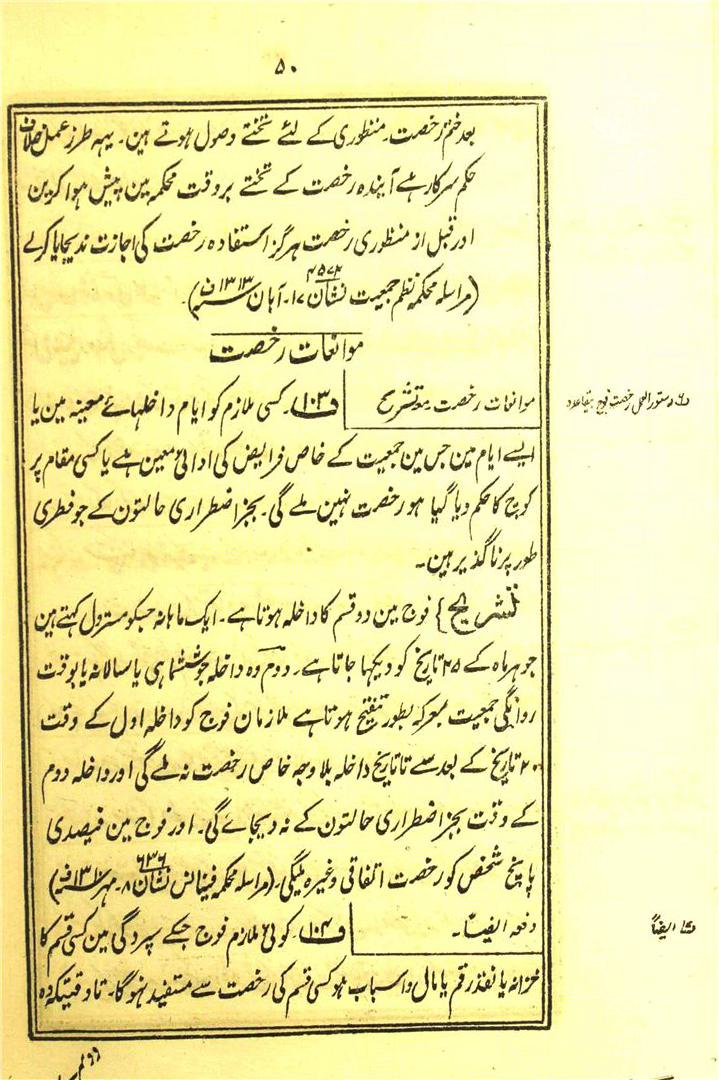 ۵۰
بعد ختم رخصت منظوری کے لئے تختے وصول ہوتے ہین۔ یہہ طرز عمل خلاف
حکم سرکار ہے آیندہ رخصت کے تختے بروقت محکمہ مین پیش ہوا کرین
اور قبل از منظوری رخصت ہرگز استفادہ رخصت کی اجازت ندیجایا کرے
(مراسلہ محکمہ نظم جمعیت نشان ۴۵۷۲ ۱۷۔ آبان ۱۳۱۳ف)۔
موانعات رخصت
موانعات رخصت معہ تشریح
ف(۱۰۳)۔ کسی ملازم کو ایام داخلہائے معینہ مین یا
ایسے ایام مین جس مین جمعیت کے خاص فرایض کی ادائی معین ہے یا کسی مقام پر
کوچ کا حکم دیا گیا ہو رخصت نہین ملے گی۔ بجز اضطراری حالتون کے جو فطری
طور پر ناگذیر ہین۔
تشریح} فوج مین دو قسم کا داخلہ ہوتا ہے۔ ایک ماہانہ جسکو مسٹرول کہتے ہین
جو ہر ماہ کے ۲۵ تاریخ کو دیکہا جاتا ہے۔ دوم وہ داخلہ جو ششماہی یا سالانہ یا بوقت
روانگی جمعیت بمعرکہ بطور تنقیح ہوتا ہے ملازمان فوج کو داخلہ اول کے وقت
۲۰ تاریخ کے بعد سے تا تاریخ داخلہ بلا وجہ خاص رخصت نہ ملے گی اور داخلہ دوم
کے وقت بجز اضطراری حالتون کے نہ دیجاے گی۔ اور فوج مین فیصدی
پانچ شخص کو رخصت اتفاقی وغیرہ ملیگی۔ (مراسلہ محکمہ فینانس نشان ۶۳۶ ۸۔ مہر
دفعہ ایضاً۔
ف(۱۰۴)۔ کوئی ملازم فوج جسکے سپردگی مین کسی قسم کا
خزانہ یا نقد رقم یا مال و اسباب ہو کسی قسم کی رخصت سے مستفید نہوگا۔ تاوقتیکہ وہ
دستور العمل رخصت فوج بیقاعدہ
ایضاً